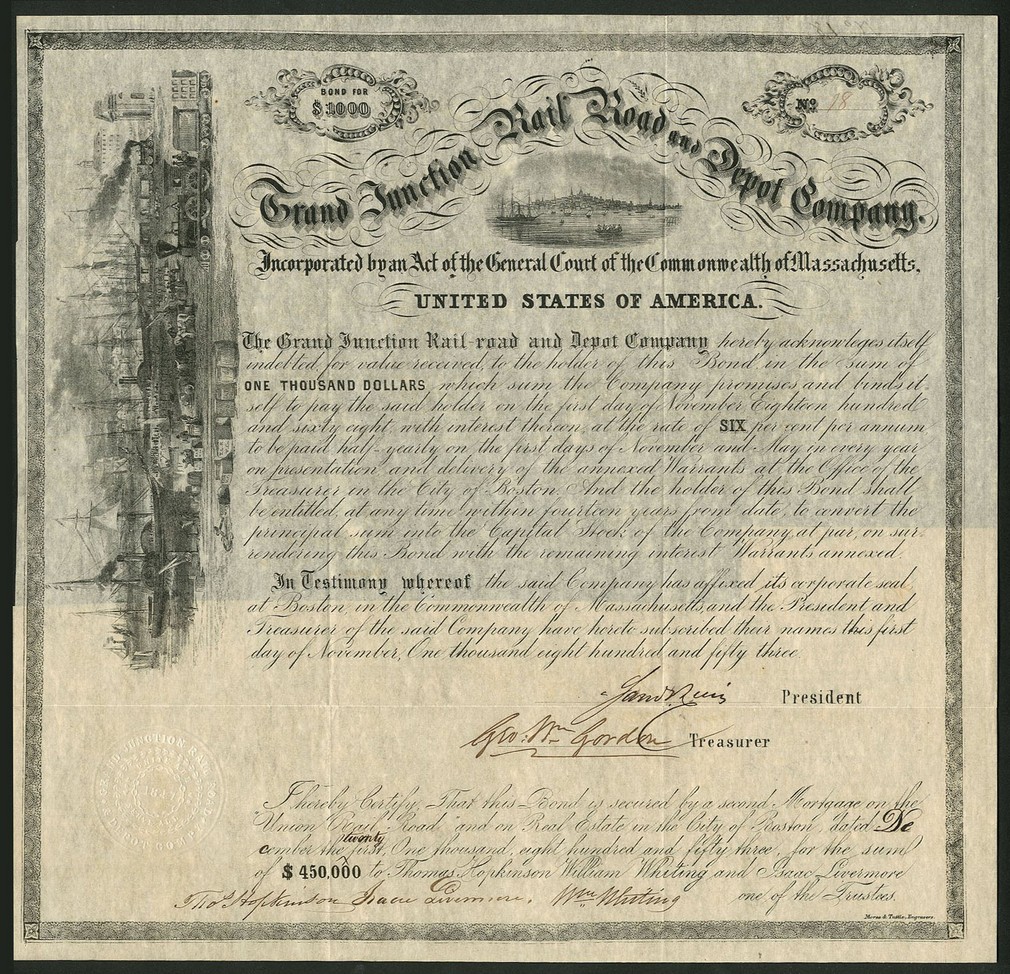 BOND FOR
$1000
No. 18
Grand Junction Rail Road and Depot Company.
Incorporated by an Act of the General Court of the Commonwealth of Massachusetts,
UNITED STATES OF AMERICA.
The Grand Junction Rail-road and Depot Company hereby acknowleges itself
indebted, for value received, to the holder of this Bond, in the sum of
ONE THOUSAND DOLLARS which sum the Company promises and binds it-
self to pay the said holder on the first day of November Eighteen hundred
and sixty eight, with interest thereon, at the rate of SIX per cent per annum
to be paid half-yearly on the first days of November and May in every year
on presentation and delivery of the annexed Warrants at the Office of the
Treasurer in the City of Boston. And the holder of this Bond shall
be entitled, at any time within fourteen years from date, to convert the
principal sum into the Capital Stock of the Company, at par, on sur-
rendering this Bond with the remaining interest Warrants annexed.
In Testimony whereof the said Company has affixed its corporate seal
at Boston, in the Commonwealth of Massachusetts, and the President and
Treasurer of the said Company have hereto subscribed their names this first
day of November, One thousand eight hundred and fifty three.
President
Geo: Wm Gordon Treasurer
JUNCTION
I hereby Certify, That this Bond is secured by a second Mortgage on the
"Union Rail Road" and on Real Estate in the City of Boston, dated De
cember the twenty first, One thousand, eight hundred and fifty three, for the sum
of $450,000 to Thomas Hopkinson William Whiting and Isaac Livermore
Thos Hopkinson Isaac Livermore. Wm Whiting one of the Trustees.
Morse & Tuttle, Engravers.